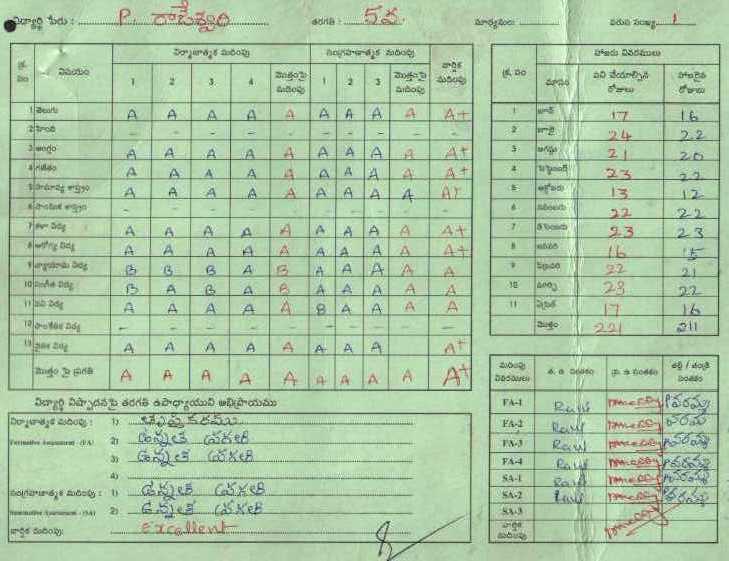 విద్యార్థి పేరు : P. రాజేశ్వరి తరగతి : 5వ. మార్కులు : వరుస సంఖ్య 1
నిర్మాణాత్మక మదింపు సంగ్రహణాత్మక మదింపు
క్ర. సం విషయం 1 2 3 4 మొత్తంపై మదింపు 1 2 3 మొత్తంపై మదింపు వార్షిక మదింపు
1 తెలుగు A A A A A A A A A A+
2 హిందీ - - - - - - - - - -
3 ఆంగ్లం A A A A A A A A A A+
4 గణితం A A A A A A A A A A+
5 సామాన్య శాస్త్రం A A A A A A A A A A+
6 సాంఘిక శాస్త్రం - - - - - - - - - -
7 కళా విద్య A A A A A A A A A A+
8 ఆరోగ్య విద్య A A A A A A A A A A+
9 వ్యాయామ విద్య B B B A B A A A A A
10 సంగీత విద్య B A B A B A A A A A
11 పని విద్య A A A A A B A A A A
12 సాంకేతిక విద్య - - - - - - - - - -
13 నైతిక విద్య A A A A A A A A A+
మొత్తం పై ప్రగతి A A A A A A A A A A+
హాజరు వివరములు
క్ర. సం మాసం పని చేయాల్సిన రోజులు హాజరైన రోజులు
1 జూన్ 17 16
2 జూలై 24 22
3 ఆగష్టు 21 20
4 సెప్టెంబర్ 23 22
5 అక్టోబరు 13 12
6 నవంబరు 22 22
7 డిసెంబరు 23 23
8 జనవరి 16 15
9 ఫిబ్రవరి 22 21
10 మార్చి 23 22
11 ఏప్రిల్ 17 16
మొత్తం 221 211
విద్యార్థి నిష్పాదనపై తరగతి ఉపాధ్యాయుని అభిప్రాయము
నిర్మాణాత్మక మదింపు : 1)
Formative Assessment - (FA) 2) ఉన్నత ప్రగతి
3) ఉన్నత ప్రగతి
4)
సంగ్రహణాత్మక మదింపు : 1) ఉన్నత ప్రగతి
Summative Assessment - (SA) 2) ఉన్నత ప్రగతి
వార్షిక మదింపు: Excellent
మదింపు వివరములు త. ఉ సంతకం ప్ర. ఉ సంతకం తల్లి / తండ్రి సంతకం
FA-1 Ravi
FA-2 Ravi
FA-3 Ravi
FA-4 Ravi
SA-1 Ravi
SA-2 Ravi
SA-3
వార్షిక మదింపు